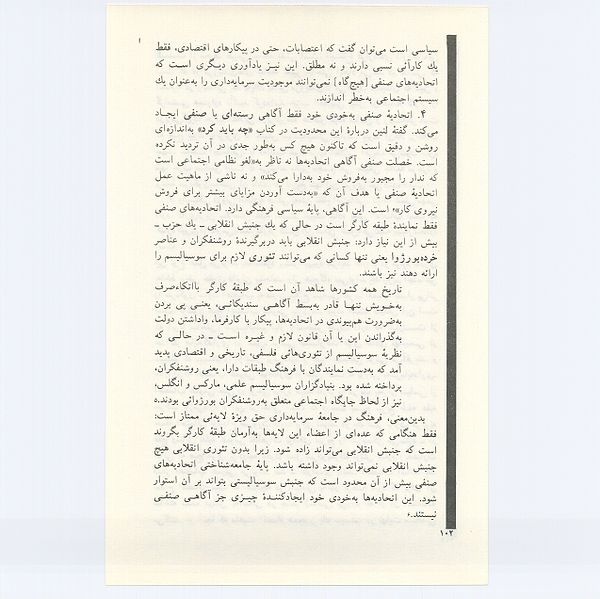 سیاسی است می‌توان گفت که اعتصابات، حتی در پیکارهای اقتصادی، فقط
یك کارآئی نسبی دارند و نه مطلق. این نیـز یادآوری دیـگری اسـت که
اتحادیه‌های صنفی [هیچ‌گاه] نمی‌توانند موجودیت سرمایه‌داری را به‌عنوان یك
سیستم اجتماعی به‌خطر اندازند.
۴. اتحادیۀ صنفی به‌خودی خود فقط آگاهی رسته‌ای یا صنفی ایجـاد
می‌کند. گفتۀ لنین دربارۀ این محدودیت در کتاب «چه باید کرد» به‌اندازه‌ای
روشن و دقیق است که تاکنون هیچ کس به‌طور جدی در آن تردید نکرده
است. خصلت صنفی آگاهی اتحادیه‌ها نه ناظر به«لغو نظامی اجتماعی است
که ندار را مجبور به‌فروش خود به‌دارا می‌کند» و نه ناشی از ماهیت عمل
اتحادیۀ صنفی با هدف آن که «به‌دست آوردن مزایای بیشتر برای فروش
نیروی کار» است. این آگاهی، پایۀ سیاسی فرهنگی دارد. اتحادیه‌های صنفی
فقط نمایندۀ طبقه کارگر است در حالی که یك جنبش انقلابی ــ یك حزب ــ
بیش از این نیاز دارد: جنبش انقلابی باید دربرگیرندۀ روشنفکران و عناصر
خرده‌بورژوا یعنی تنها کسانی که می‌توانند تئوری لازم برای سوسیالیسم را
ارائه دهند نیز باشند.
تاریخ همه کشورها شاهد آن است که طبقۀ کارگر بااتکاءصرف
به‌خویش تنهـا قادر به‌بسط آگاهـی سندیکائـی، یعنـی پی بردن
به‌ضرورت هم‌پیوندی در اتحادیه‌ها، پیکار با کارفرما، واداشتن دولت
به‌گذراندن این یا آن قانون لازم و غیـره اسـت ــ در حالـی که
نظریۀ سوسیالیسم از تئوری‌هائی فلسفی، تاریخی و اقتصادی پدید
آمد که به‌دست نمایندگان با فرهنگ طبقات دارا، یعنی روشنفکران،
پرداخته شده بود. بنیادگزاران سوسیالیسم علمی، مارکس و انگلس،
نیز از لحاظ جایگاه اجتماعی متعلق به‌روشنفکران بورژوائی بودند.۵
بدین‌معنی، فرهنگ در جامعۀ سرمایه‌داری حق ویژۀ لایه‌ئی ممتاز است:
فقط هنگامی که عده‌ای از اعضاء این لایه‌ها به‌آرمان طبقۀ کارگر بگروند
است که جنبش انقلابی می‌تواند زاده شود. زیرا بدون تئوری انقلابی هیچ
جنبش انقلابی نمی‌تواند وجود داشته باشد. پایۀ جامعه‌شناختی اتحادیه‌های
صنفی بیش از آن محدود است که جنبش سوسیالیستی بتواند بر آن استوار
شود. این اتحادیه‌ها به‌خودی خود ایجادکننـدۀ چیـزی جز آگاهـی صنفـی
نیستند.۶
۱۰۲